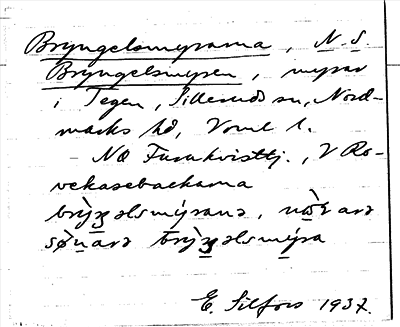 Bryngelsmyrarna, N. S.
Bryngelsmyren, myrar
i Tegen, Sillerud sn, Nord-
marks hd, Vrml l.
– NO Furukvisttj., V Ro-
vekasebackarna
brỳŋəlsmýrana, nɷ̀ʀarə
sø̀narə brỳŋəlsmýra
E. Silfors 1937.